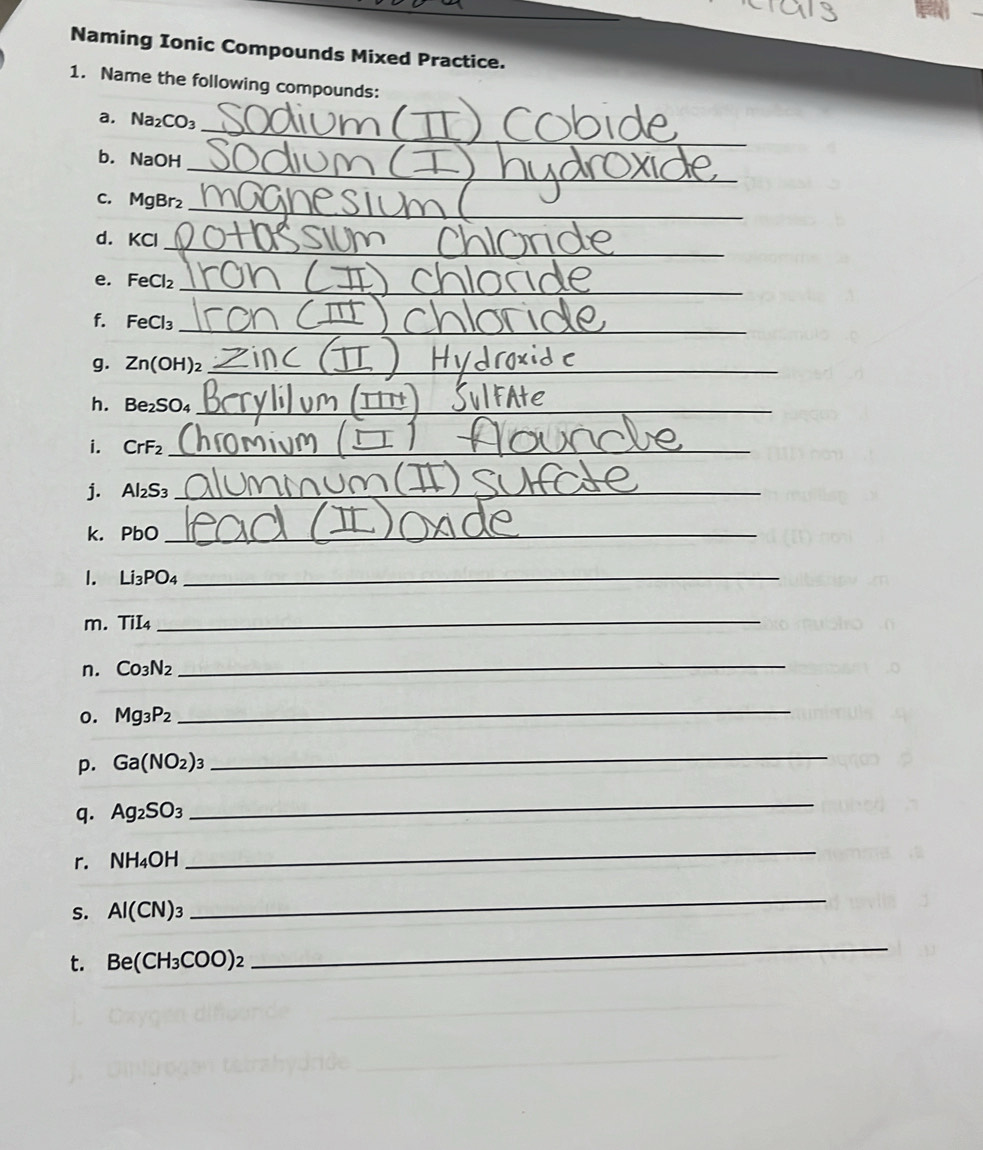 Naming Ionic Compounds Mixed Practice.
1. Name the following compounds:
a. Na₂CO₃ Sodium (II) Cobide
b. NaOH Sodium (I) hydroxide
c. MgBr₂ magnesium (
d. KCl potassium chloride
e. FeCl₂ Iron (II) chloride
f. FeCl₃ Iron (III) chloride
g. Zn(OH)₂ Zinc (II) Hydroxide
h. Be₂SO₄ Berylilum (IIII) SulFAte
i. CrF₂ Chromium (II)
j. Al₂S₃ aluminum (II)
k. PbO lead (II) oxide
l. Li₃PO₄
m. TiI₄
n. Co₃N₂
o. Mg₃P₂
p. Ga(NO₂)₃
q. Ag₂SO₃
r. NH₄OH
s. Al(CN)₃
t. Be(CH₃COO)₂